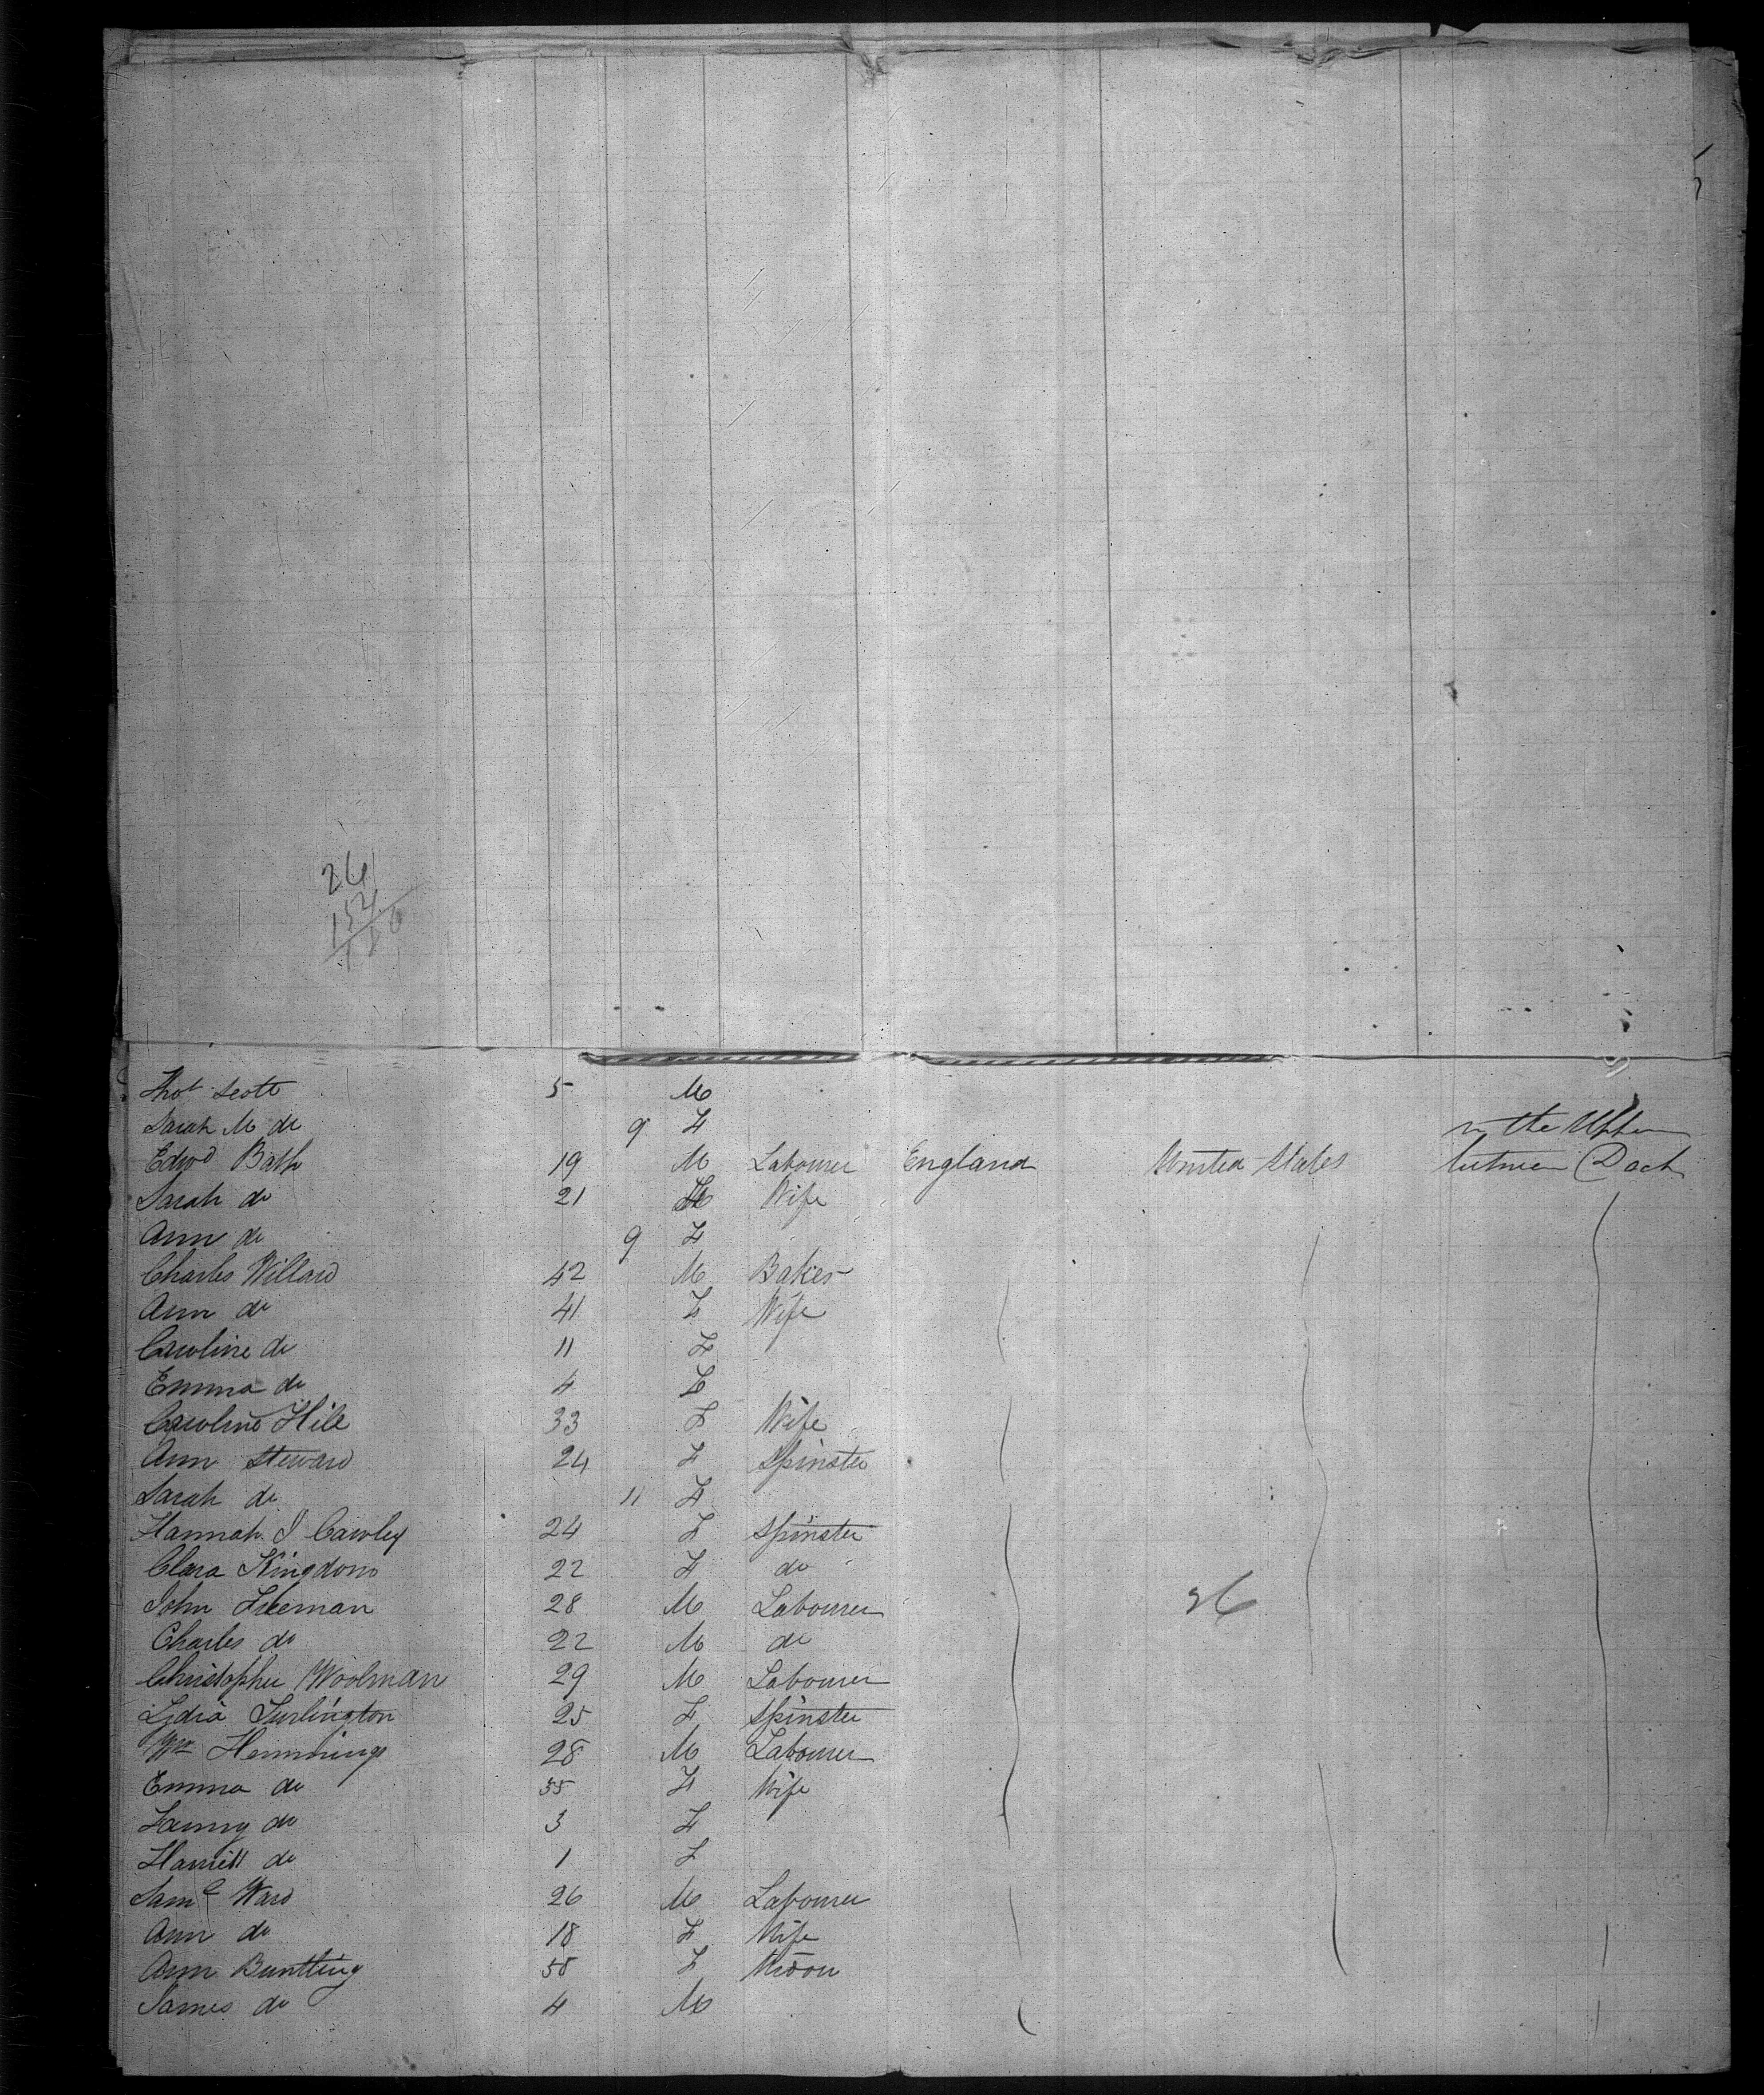 26
154
180
Thos Scott 5 M
Sarah M do 9 F in the Upper
Edwd Bath 19 M Labourer England United States between Deck
Sarah do 21 F Wife
Ann do 9 F
Charles Willard 42 M Baker
Ann do 41 F Wife
Caroline do 11 F
Emma do 4 F
Caroline Hill 33 F Wife
Ann Steward 24 F Spinster
Sarah do 11 F
Hannah J Cawley 24 F Spinster
Clara Kingdom 22 F do
John Freeman 28 M Labourer 26
Charles do 22 M do
Christopher Woolman 29 M Labourer
Lydia Turlington 25 F Spinster
Wm Hemmings 28 M Labourer
Emma do 35 F Wife
Fanny do 3 F
Harriett do 1 F
Saml Ward 26 M Labourer
Ann do 18 F Wife
Ann Buntting 58 F Widow
James do 4 M